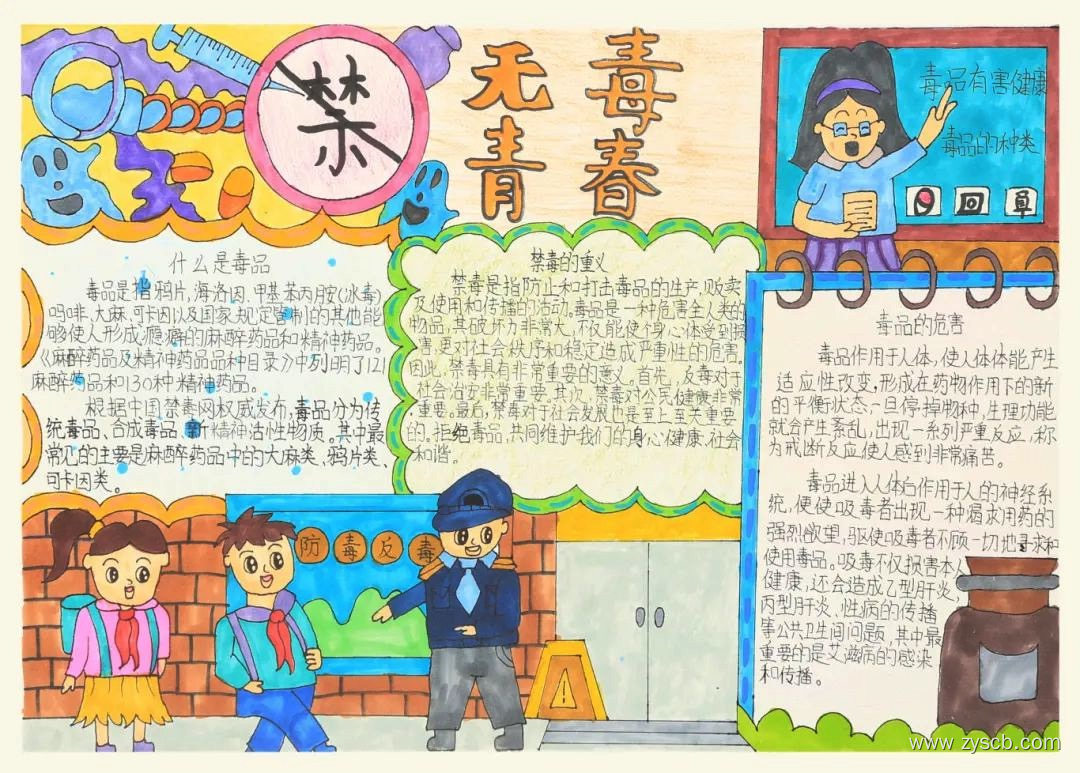 禁
无毒
青春
毒品有害健康
毒品的种类
什么是毒品
毒品是指鸦片、海洛因、甲基苯丙胺(冰毒)
吗啡、大麻、可卡因以及国家规定管制的其他能
够使人形成瘾癖的麻醉药品和精神药品。
《麻醉药品及精神药品品种目录》中列明了121
麻醉药品和130种精神药品。
根据中国禁毒网权威发布,毒品分为传
统毒品、合成毒品、新精神活性物质。其中最
常见的主要是麻醉药品中的大麻类、鸦片类、
可卡因类。
禁毒的重义
禁毒是指防止和打击毒品的生产、贩卖
及使用和传播的活动。毒品是一种危害全人类的
物品,其破坏力非常大,不仅能使个身心体受到损
害,更对社会秩序和稳定造成严重性的危害。
因此,禁毒具有非常重要的意义。首先,反毒对于
社会治安非常重要。其次,禁毒对公民健康非常
重要。最后,禁毒对于社会发展也是至上至关重要
的。拒绝毒品,共同维护我们的身心健康、社会
和谐。
毒品的危害
毒品作用于人体,使人体体能产生
适应性改变,形成在药物作用下的新
的平衡状态,一旦停掉物种,生理功能
就会产生紊乱,出现一系列严重反应,称
为戒断反应使人感到非常痛苦。
毒品进入人体后作用于人的神经系
统,便使吸毒者出现一种渴求用药的
强烈欲望,驱使吸毒者不顾一切地寻求和
使用毒品。吸毒不仅损害本人
健康,还会造成乙型肝炎、
丙型肝炎、性病的传播
等公共卫生间问题,其中最
重要的是艾滋病的感染
和传播。
防毒反毒
www.zyscb.com